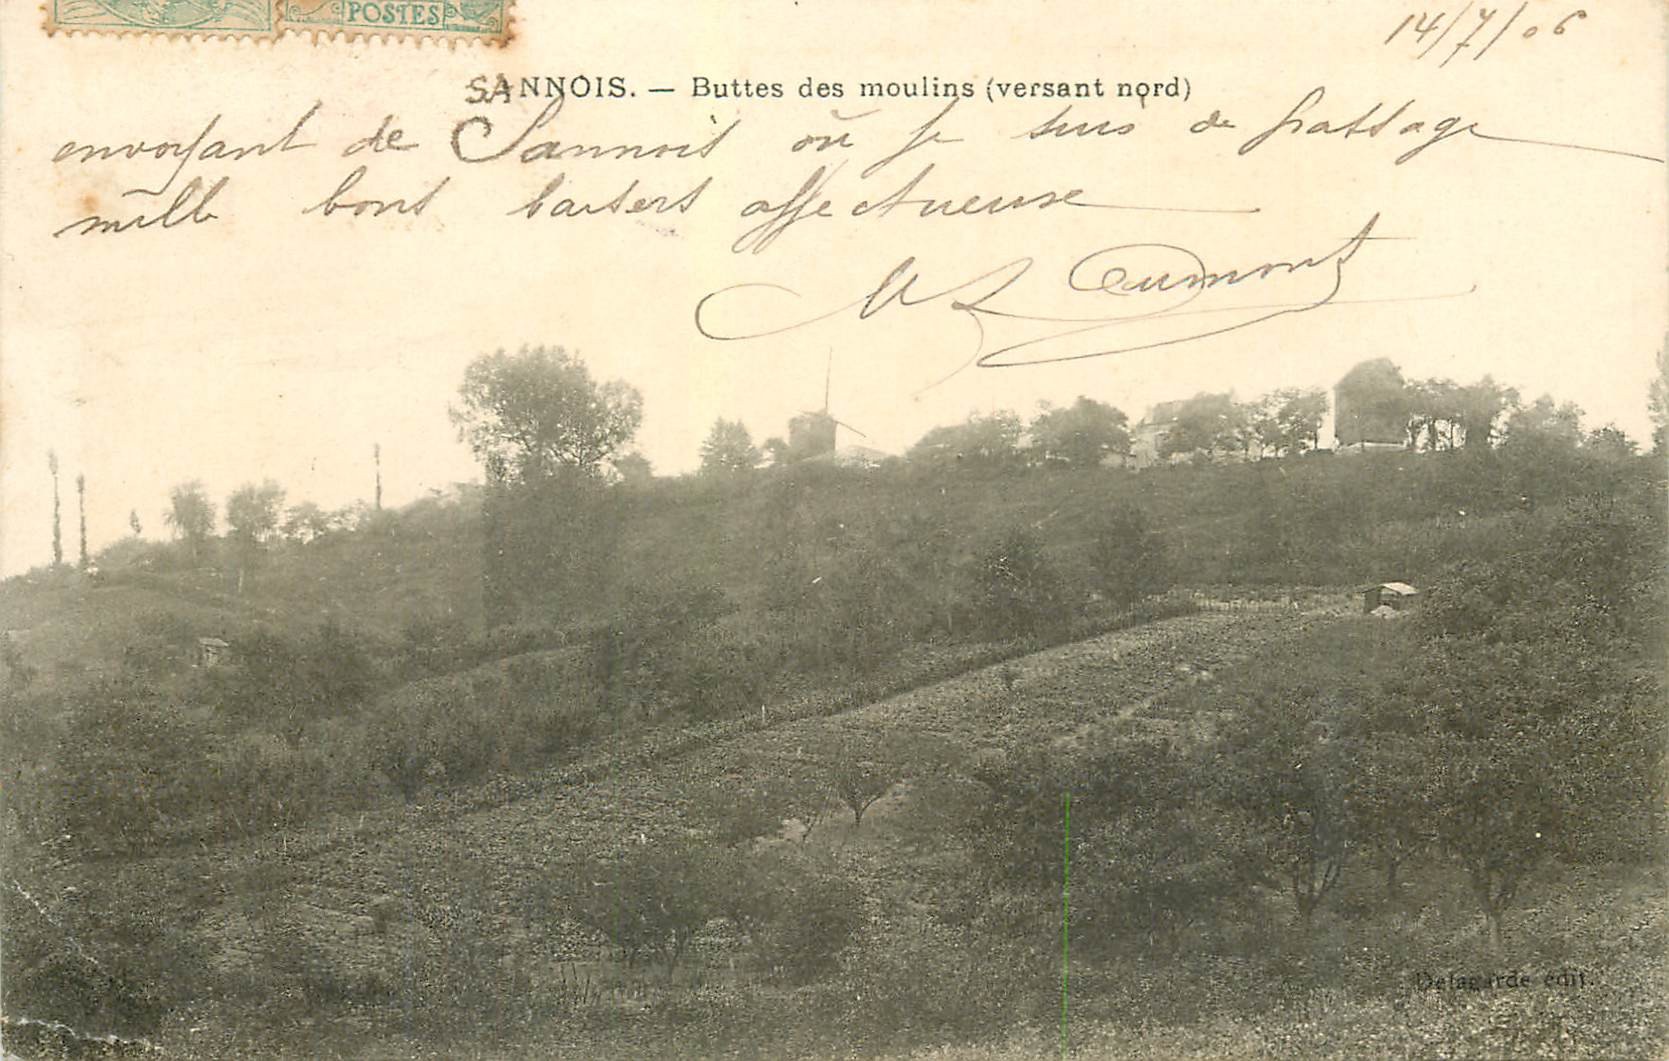 POSTES
14/7/06
SANNOIS. — Buttes des moulins (versant nord)
envoyant de Sannois où je suis de passage
mille bons baisers affectueuse
Dumont
Delagarde édit.